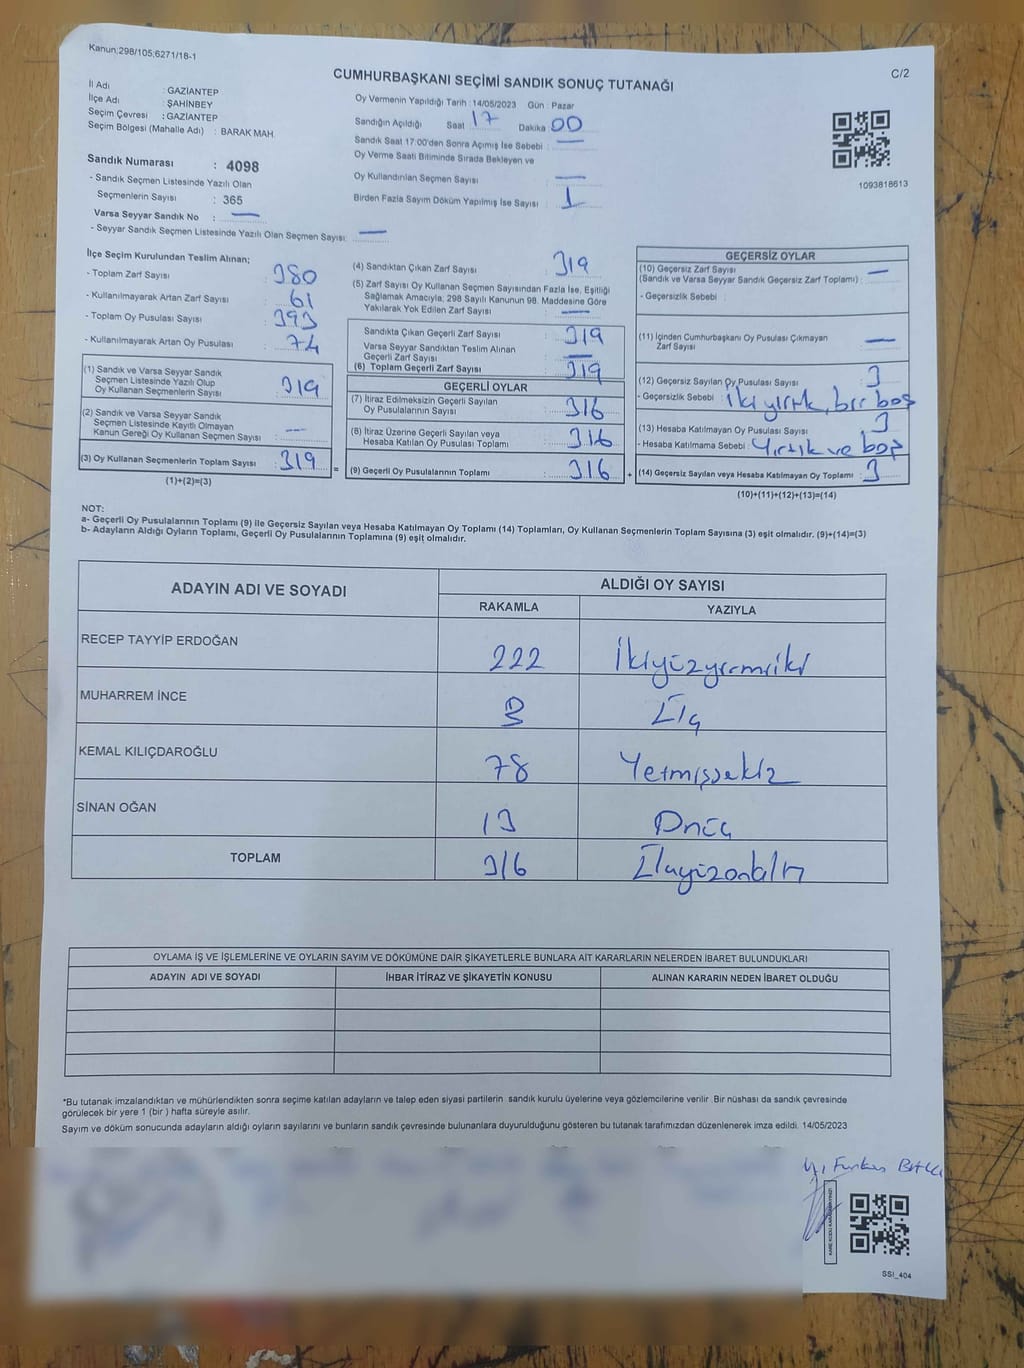 Kanun;298/105;6271/18-1
C/2
CUMHURBAŞKANI SEÇİMİ SANDIK SONUÇ TUTANAĞI
İl Adı : GAZİANTEP
İlçe Adı : ŞAHİNBEY
Seçim Çevresi : GAZİANTEP
Seçim Bölgesi (Mahalle Adı) : BARAK MAH.
Sandık Numarası : 4098
- Sandık Seçmen Listesinde Yazılı Olan
Seçmenlerin Sayısı : 365
Varsa Seyyar Sandık No : —
- Seyyar Sandık Seçmen Listesinde Yazılı Olan Seçmen Sayısı: —
Oy Vermenin Yapıldığı Tarih : 14/05/2023 Gün : Pazar
Sandığın Açıldığı Saat 17 Dakika 00
Sandık Saat 17:00'den Sonra Açımış İse Sebebi : —
Oy Verme Saati Bitiminde Sırada Bekleyen ve
Oy Kullandırılan Seçmen Sayısı —
Birden Fazla Sayım Döküm Yapılmış İse Sayısı 1
1093818613
İlçe Seçim Kurulundan Teslim Alınan;
- Toplam Zarf Sayısı : 380
- Kullanılmayarak Artan Zarf Sayısı : 61
- Toplam Oy Pusulası Sayısı : 393
- Kullanılmayarak Artan Oy Pusulası : 74
(1) Sandık ve Varsa Seyyar Sandık
Seçmen Listesinde Yazılı Olup
Oy Kullanan Seçmenlerin Sayısı : 319
(2) Sandık ve Varsa Seyyar Sandık
Seçmen Listesinde Kayıtlı Olmayan
Kanun Gereği Oy Kullanan Seçmen Sayısı : —
(3) Oy Kullanan Seçmenlerin Toplam Sayısı : 319
(1)+(2)=(3)
=
(4) Sandıktan Çıkan Zarf Sayısı 319
(5) Zarf Sayısı Oy Kullanan Seçmen Sayısından Fazla İse, Eşitliği
Sağlamak Amacıyla; 298 Sayılı Kanunun 98. Maddesine Göre
Yakılarak Yok Edilen Zarf Sayısı : —
Sandıkta Çıkan Geçerli Zarf Sayısı 319
Varsa Seyyar Sandıktan Teslim Alınan
Geçerli Zarf Sayısı —
(6) Toplam Geçerli Zarf Sayısı : 319
GEÇERLİ OYLAR
(7) İtiraz Edilmeksizin Geçerli Sayılan
Oy Pusulalarının Sayısı : 316
(8) İtiraz Üzerine Geçerli Sayılan veya
Hesaba Katılan Oy Pusulası Toplamı : 316
(9) Geçerli Oy Pusulalarının Toplamı : 316
+
GEÇERSİZ OYLAR
(10) Geçersiz Zarf Sayısı
(Sandık ve Varsa Seyyar Sandık Geçersiz Zarf Toplamı) : —
- Geçersizlik Sebebi :
(11) İçinden Cumhurbaşkanı Oy Pusulası Çıkmayan
Zarf Sayısı —
(12) Geçersiz Sayılan Oy Pusulası Sayısı : 3
- Geçersizlik Sebebi : iki yırtık, bir boş
(13) Hesaba Katılmayan Oy Pusulası Sayısı : 3
- Hesaba Katılmama Sebebi : Yırtık ve boş
(14) Geçersiz Sayılan veya Hesaba Katılmayan Oy Toplamı : 3
(10)+(11)+(12)+(13)=(14)
NOT:
a- Geçerli Oy Pusulalarının Toplamı (9) ile Geçersiz Sayılan veya Hesaba Katılmayan Oy Toplamı (14) Toplamları, Oy Kullanan Seçmenlerin Toplam Sayısına (3) eşit olmalıdır. (9)+(14)=(3)
b- Adayların Aldığı Oyların Toplamı, Geçerli Oy Pusulalarının Toplamına (9) eşit olmalıdır.
ADAYIN ADI VE SOYADI ALDIĞI OY SAYISI
RAKAMLA YAZIYLA
RECEP TAYYİP ERDOĞAN 222 İkiyüzyirmiiki
MUHARREM İNCE 3 Üç
KEMAL KILIÇDAROĞLU 78 Yetmişsekiz
SİNAN OĞAN 13 Onüç
TOPLAM 316 Üçyüzonaltı
OYLAMA İŞ VE İŞLEMLERİNE VE OYLARIN SAYIM VE DÖKÜMÜNE DAİR ŞİKAYETLERLE BUNLARA AİT KARARLARIN NELERDEN İBARET BULUNDUKLARI
ADAYIN ADI VE SOYADI İHBAR İTİRAZ VE ŞİKAYETİN KONUSU ALINAN KARARIN NEDEN İBARET OLDUĞU
*Bu tutanak imzalandıktan ve mühürlendikten sonra seçime katılan adayların ve talep eden siyasi partilerin sandık kurulu üyelerine veya gözlemcilerine verilir .Bir nüshası da sandık çevresinde
görülecek bir yere 1 (bir ) hafta süreyle asılır.
Sayım ve döküm sonucunda adayların aldığı oyların sayılarını ve bunların sandık çevresinde bulunanlara duyurulduğunu gösteren bu tutanak tarafımızdan düzenlenerek imza edildi. 14/05/2023
Furkan
SSİ_404